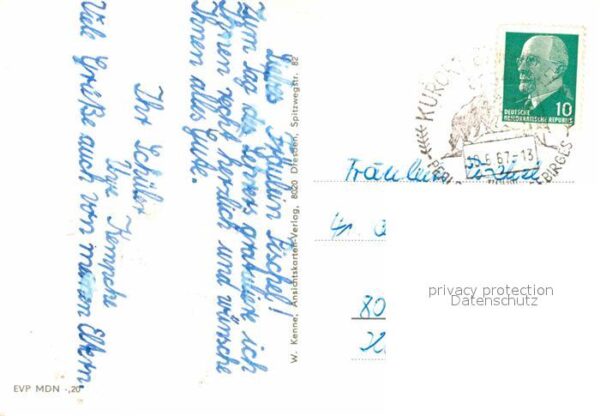 Liebes Fräulein Püschel!
Zum Tag des Lehrers gratuliere ich
Ihnen recht herzlich und wünsche
Ihnen alles Gute.
Ihr Schüler
Kempche
Viele Grüße auch von meinen Eltern.
W. Kenne, Ansichtskarten-Verlag, 8020 Dresden, Spitzwegstr. 82
EVP MDN -,20
DEUTSCHE
DEMOKRATISCHE REPUBLIK
10
KURORT
6.67.-13
Fräulein
80
privacy protection
Datenschutz